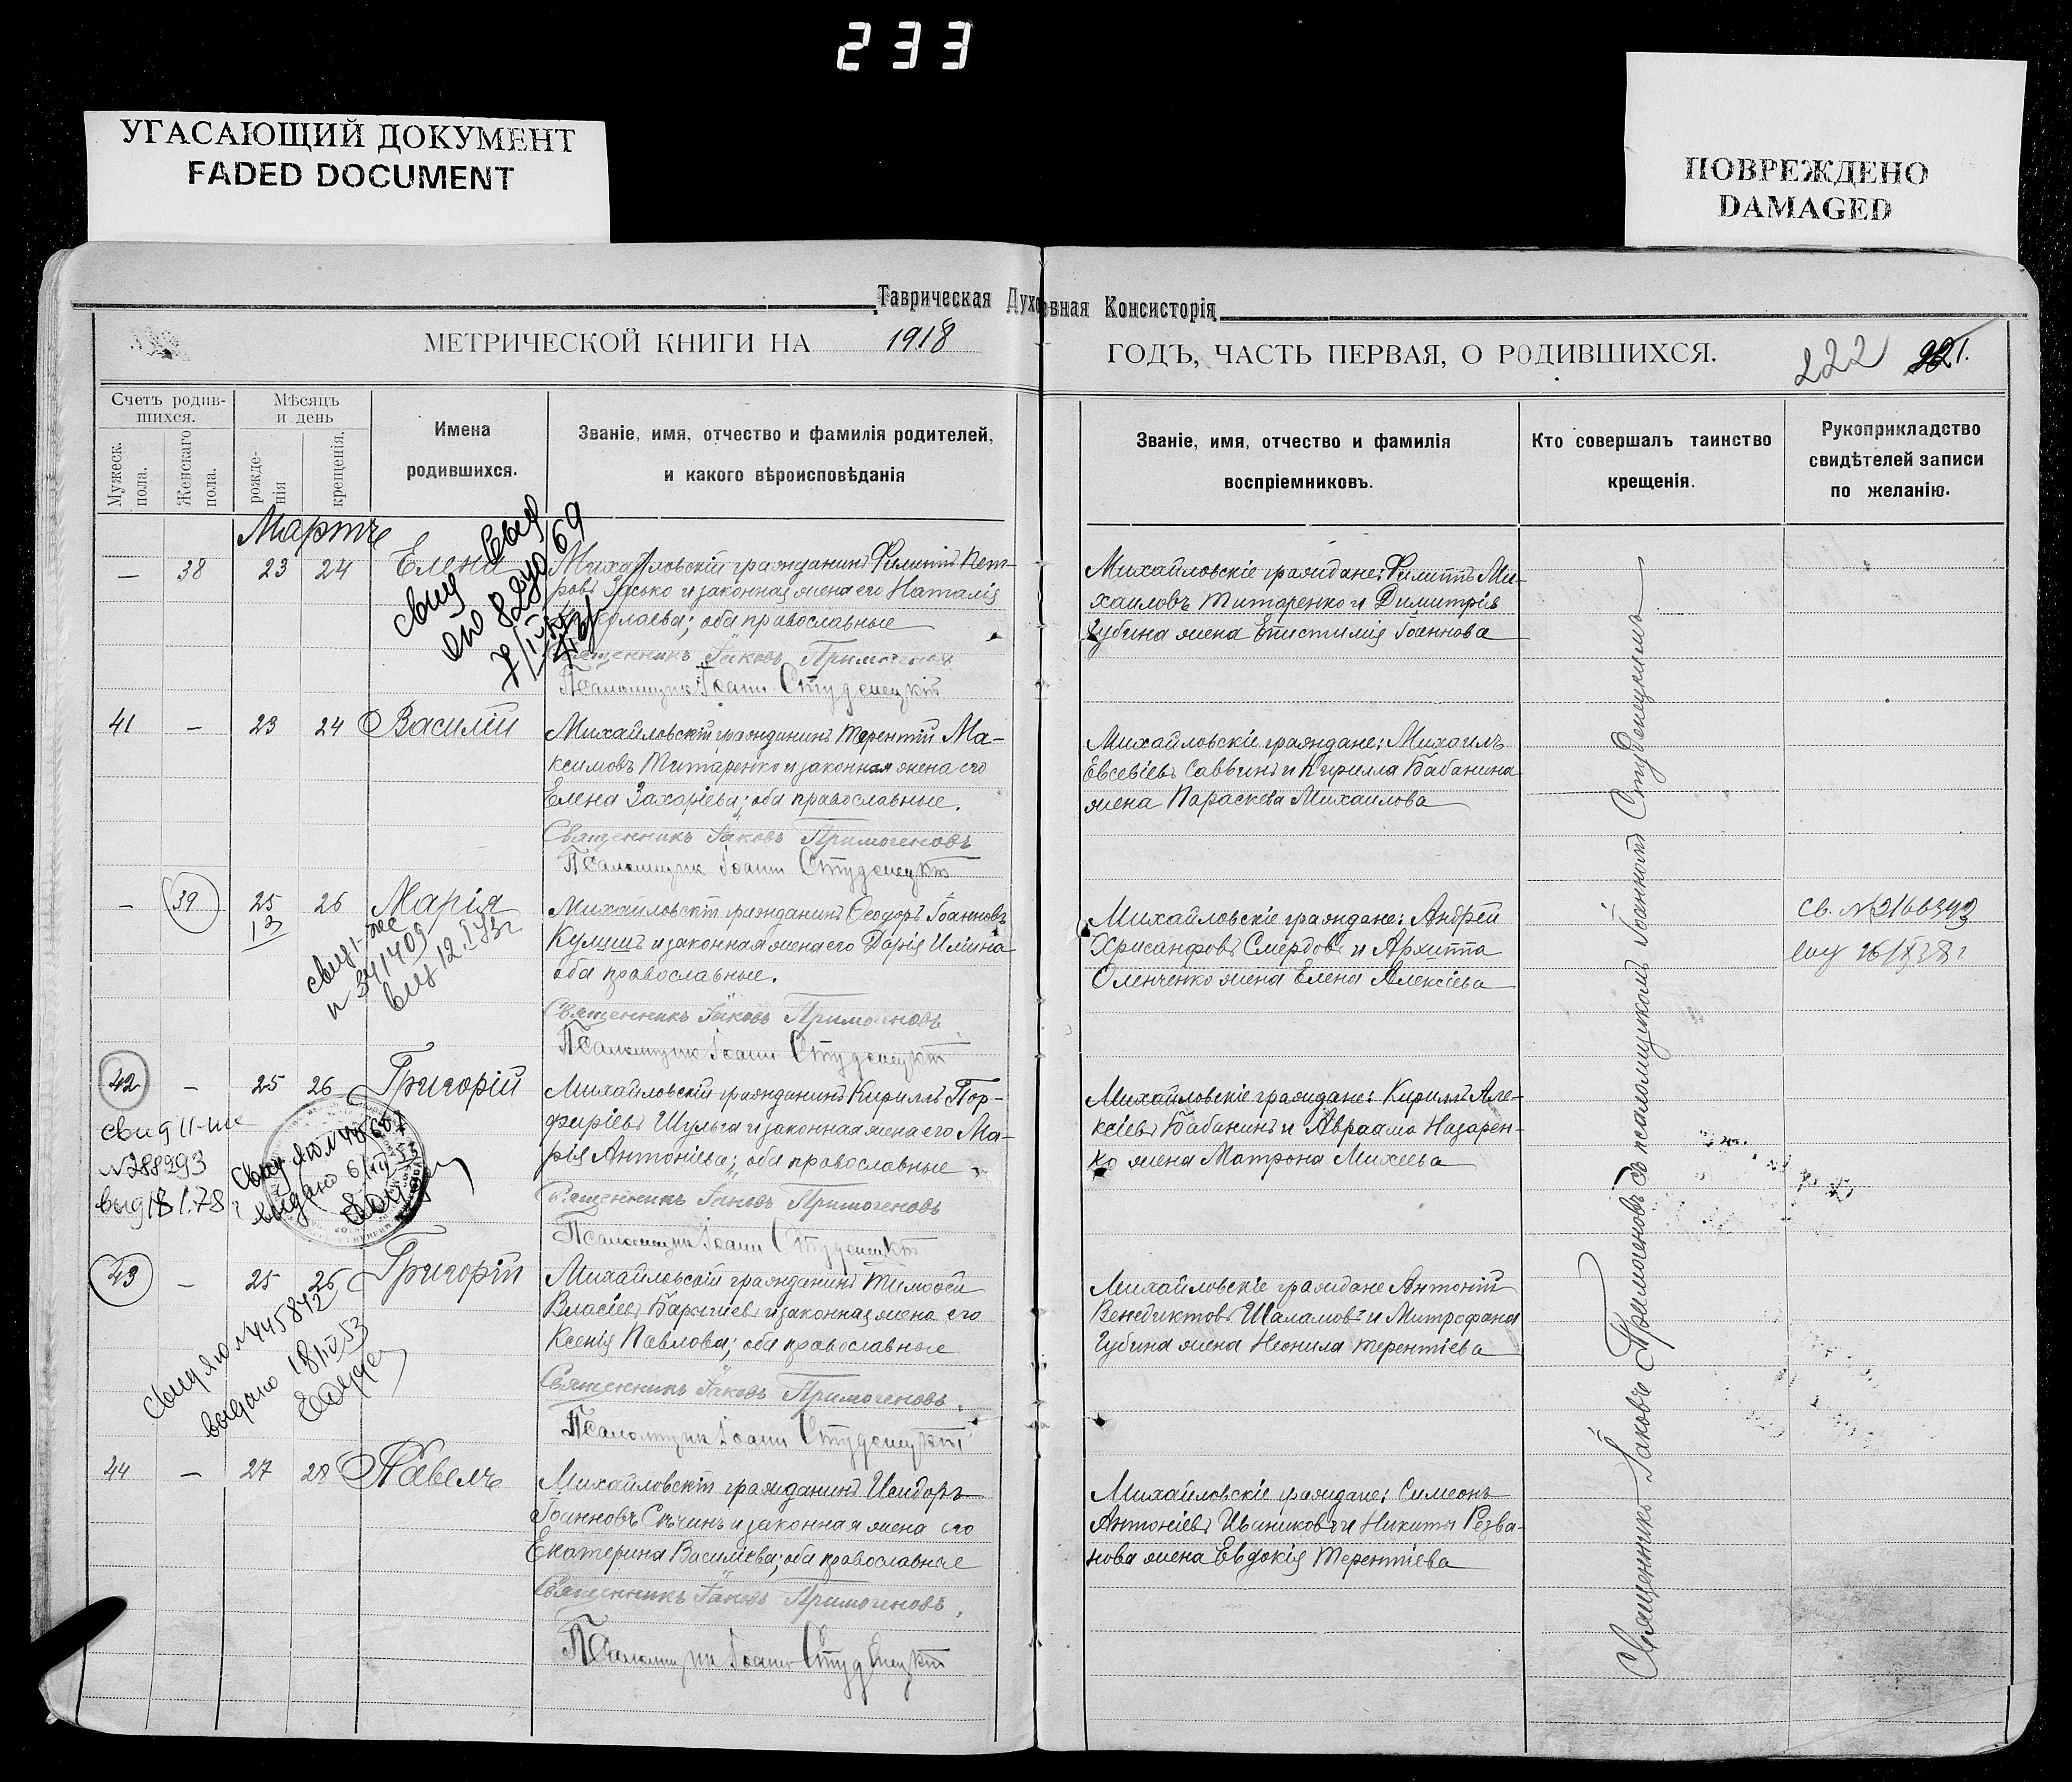 233
УГАСАЮЩИЙ ДОКУМЕНТ
FADED DOCUMENT
ПОВРЕЖДЕНО
DAMAGED
Таврическая Духовная Консисторія
МЕТРИЧЕСКОЙ КНИГИ НА 1918
ГОДЪ, ЧАСТЬ ПЕРВАЯ, О РОДИВШИХСЯ.
222
Счетъ родив-
шихся.
Мужеск. пола.
Женскаго пола.
Мѣсяцъ
и день
рожде-
нія
крещенія.
Имена
родившихся.
Званіе, имя, отчество и фамилія родителей,
и какого вѣроисповѣданія
Званіе, имя, отчество и фамилія
воспріемниковъ.
Кто совершалъ таинство
крещенія.
Рукоприкладство
свидѣтелей записи
по желанію.
Мартъ
— 38 23 24 Елена
Михайловскій гражданинъ Филиппъ Пет-
ровъ Засько и законная жена его Наталія
оба православные
Священникъ Іаковъ Примогеновъ
Псаломщикъ Іоаннъ Студенецкій
Михайловскіе граждане: Филиппъ Ми-
хаиловъ Титаренко и Димитрія
Губина жена Епистимія Іоаннова
41 — 23 24 Василій
Михайловскій гражданинъ Терентій Ма-
ксимовъ Титаренко и законная жена его
Елена Захаріева; оба православные.
Священникъ Іаковъ Примогеновъ
Псаломщикъ Іоаннъ Студенецкій
Михайловскіе граждане: Михаилъ
Евсевіевъ Саввинъ и Кирилла Бабанина
жена Параскева Михаилова
— 39 25 26 Марія
13
Михайловскій гражданинъ Ѳеодоръ Іоанновъ
Кулишъ и законная жена его Дарія Иліина
оба православные.
Священникъ Іаковъ Примогеновъ
Псаломщикъ Іоаннъ Студенецкій
Михайловскіе граждане: Андрей
Хрисанфовъ Смердовъ и Архиппа
Оленченко жена Елена Алексіева
42 — 25 26 Григорій
Михайловскій гражданинъ Кириллъ Пор-
фиріевъ Шульга и законная жена его Ма-
рія Антоніева; оба православные
Священникъ Іаковъ Примогеновъ
Псаломщикъ Іоаннъ Студенецкій
Михайловскіе граждане: Кириллъ Але-
ксіевъ Бабанинъ и Авраама Назарен-
ко жена Матрона Михеева
№288293
43 — 25 26 Григорій
Михайловскій гражданинъ Тимоѳей
Власіевъ и законная жена его
Ксенія Павлова; оба православные
Священникъ Іаковъ Примогеновъ.
Псаломщикъ Іоаннъ Студенецкій
Михайловскіе граждане Антоній
Венедиктовъ Шаламовъ и Митрофана
Губина жена Неонила Терентіева
44 — 27 28 Павелъ
Михайловскій гражданинъ Исидоръ
Іоанновъ Снѣчинъ и законная жена его
Екатерина Василіева; оба православные
Священникъ Іаковъ Примогеновъ.
Псаломщикъ Іоаннъ Студенецкій
Михайловскіе граждане: Симеонъ
Антоніевъ Иваниковъ и Никиты Резва-
нова жена Евдокія Терентіева
Священникъ Іаковъ Примогеновъ съ псаломщикомъ Іоанномъ Студенецкимъ